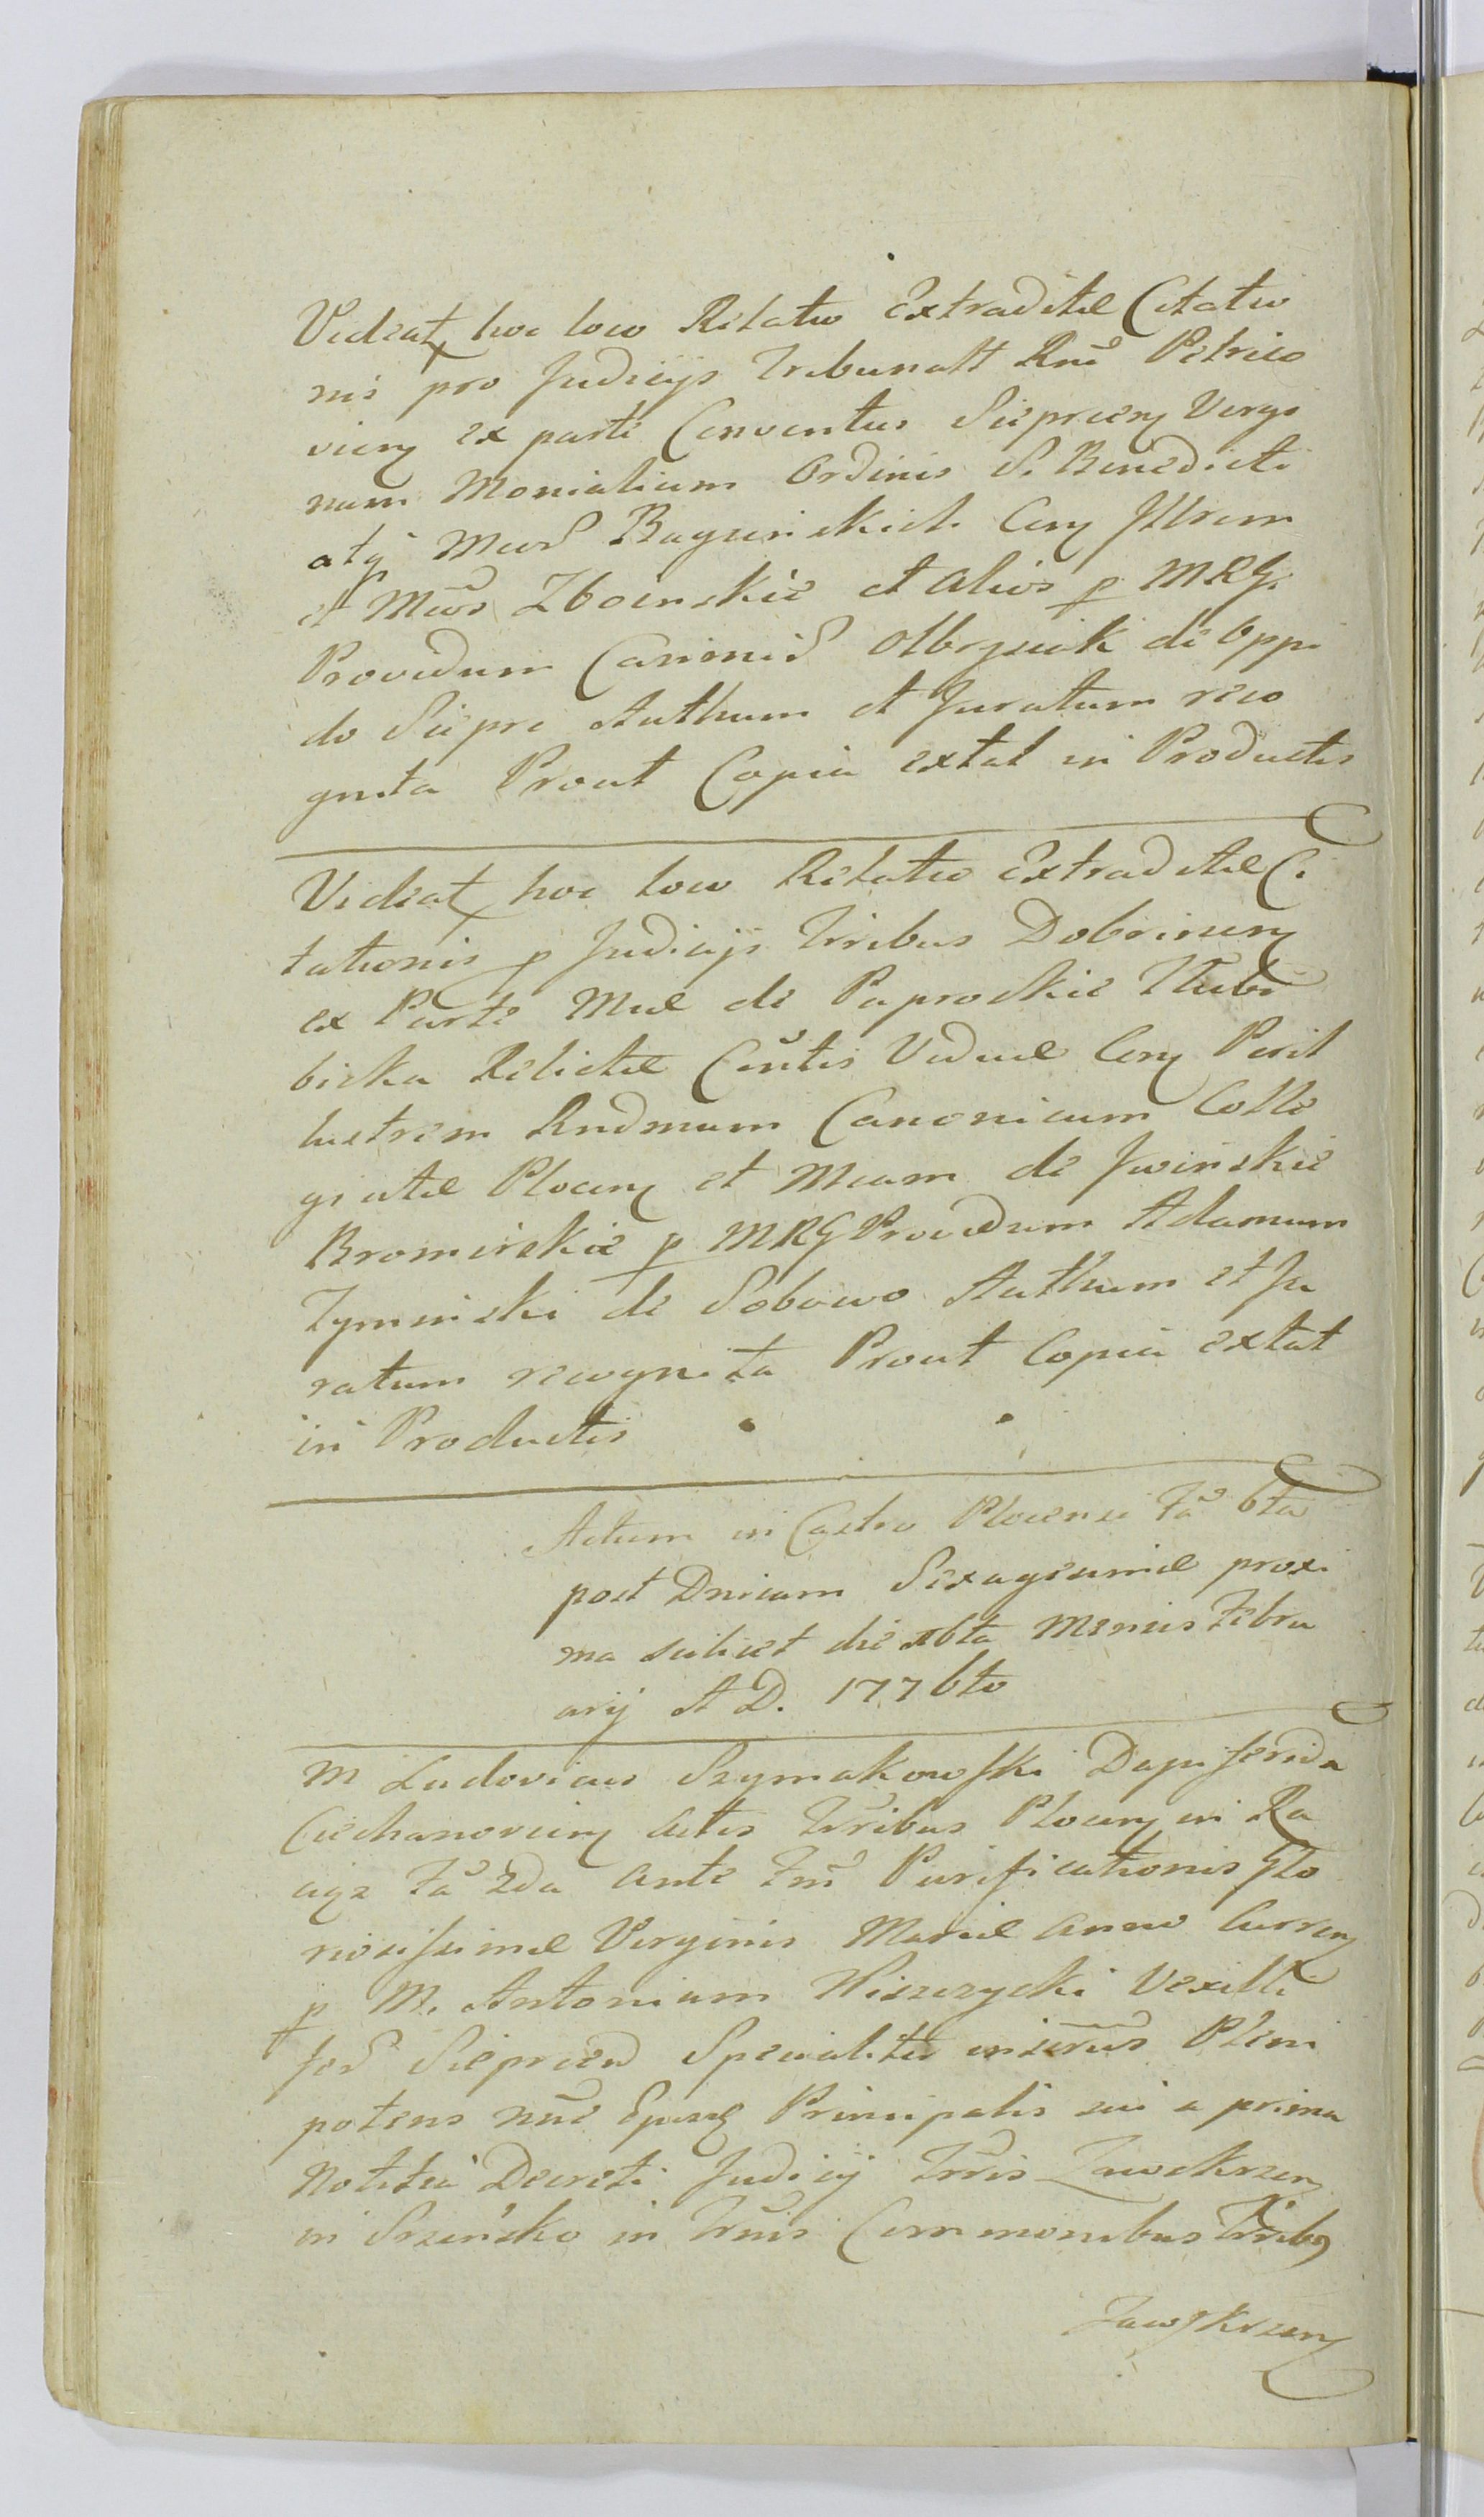 Videat hoc loco Relatio Extraditae Citatio
nis pro Judicijs Tribunalt Rnĩ Petrico
vien ex parte Conventus Sieprcen Virgi
num Monialium Ordinis S. Benedicti
atq
et Mcos Zboinskie et alios p MRG.
Providum Olbrysiak de Oppi
do Siepre Authum et Juratum reco
gnita Prout Copia extat in Productis
Videat hoc loco Relatio Extraditae Ci
tationis p Judicijs Trribus Dobrinen
ex Parte Mcae de Paprockie
bicka Relictae Cõntis Viduae Con Peril
lustrem Rndmum Canonicum Colle
giatae Plocen et Mcam de Jwinskie
Bromirskie p MRG Providum Adamum
Zyminski de Sobowo Authum et Ju
ratum recognita Prout Copia extat
in Productis
Actum in Castro Plocensi Fã 6ta
post Dnicam Sexagesimae proxi
ma scilicet die 16ta Mensis Febru
arij A D. 1776to
M Ludovicus Szymakowski Dapiferida
Ciechanovien actis Trribus Plocen in Ra
ciąz Fã 2da ante Fm̃ Purificationis Glo
riosissimae Virginis Mariae anno Curren
p M. Antonium Niszczycki Vexilli
fer Sieprcen Specialiter inscrus Pleni
potens nõie Principalis sui a prima
Notitia Decreti Judicij Trris Zawskrzen
in Srzeńsko in Trnis Communibus Trribq
Zawskrzen